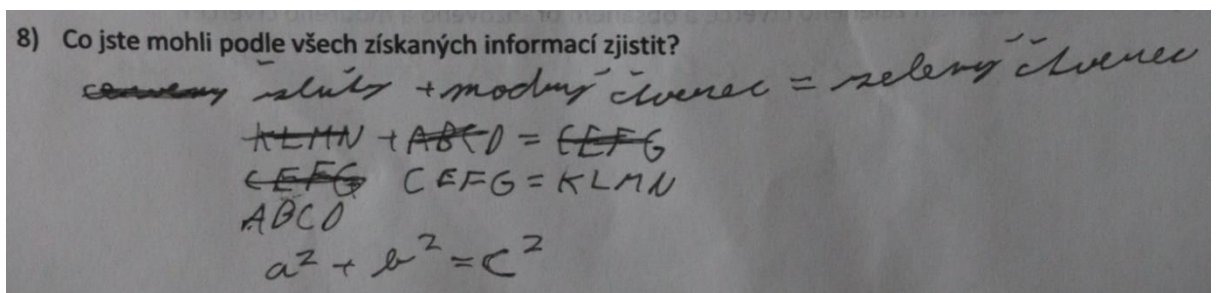 8) Co jste mohli podle všech získaných informací zjistit?
červený žlutý + modrý čtverec = zelený čtverec
KLMN + ABCD = CEFG
CEFG CEFG = KLMN
ABCD
a² + b² = c²